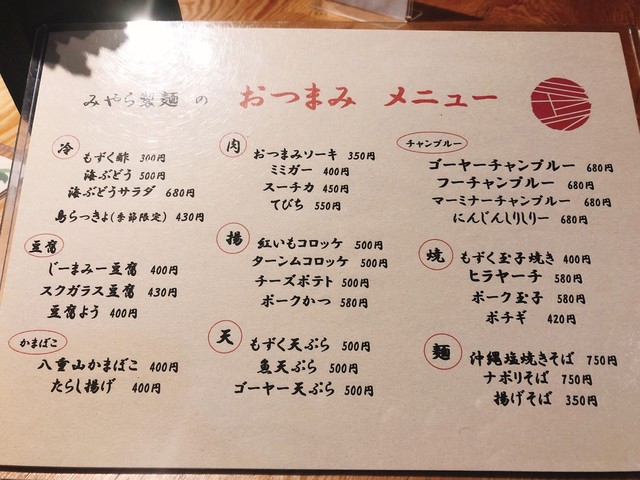 みやら製麺の おつまみ メニュー
冷
もずく酢 300円
海ぶどう 500円
海ぶどうサラダ 680円
島らっきょ(季節限定) 430円
豆腐
じーまみー豆腐 400円
スクガラス豆腐 430円
豆腐よう 400円
かまぼこ
八重山かまぼこ 400円
たらし揚げ 400円
肉
おつまみソーキ 350円
ミミガー 400円
スーチカ 450円
てびち 550円
揚
紅いもコロッケ 500円
ターンムコロッケ 500円
チーズポテト 500円
ポークかつ 580円
天
もずく天ぷら 500円
魚天ぷら 500円
ゴーヤー天ぷら 500円
チャンプルー
ゴーヤーチャンプルー 680円
フーチャンプルー 680円
マーミナーチャンプルー 680円
にんじんしりしりー 680円
焼
もずく玉子焼き 400円
ヒラヤーチ 580円
ポーク玉子 580円
ポチギ 420円
麺
沖縄塩焼きそば 750円
ナポリそば 750円
揚げそば 350円